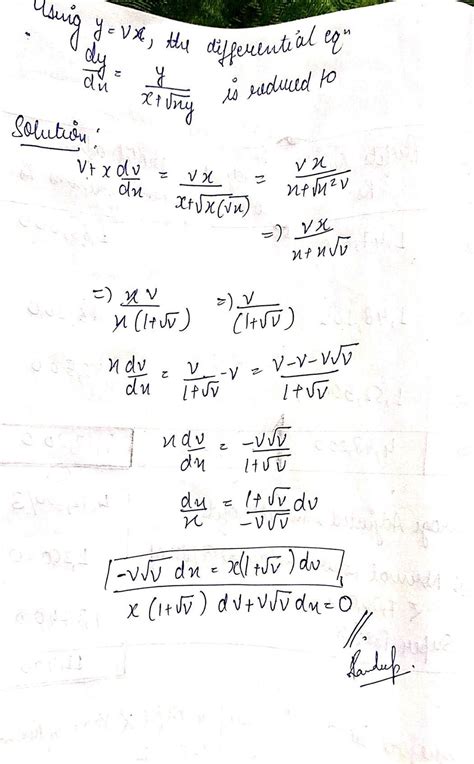 Using y = vx, the differential eqn
dy/dx = y/(x+√xy) is reduced to
Solution:
v + x dv/dx = vx/(x+√x(vx)) = vx/(x+√x²v)
=> vx/(x+x√v)
=> xv/(x(1+√v)) => v/(1+√v)
x dv/dx = v/(1+√v) - v = (v-v-v√v)/(1+√v)
x dv/dx = -v√v/(1+√v)
dx/x = (1+√v)/(-v√v) dv
-v√v dx = x(1+√v) dv
x(1+√v) dv + v√v dx = 0